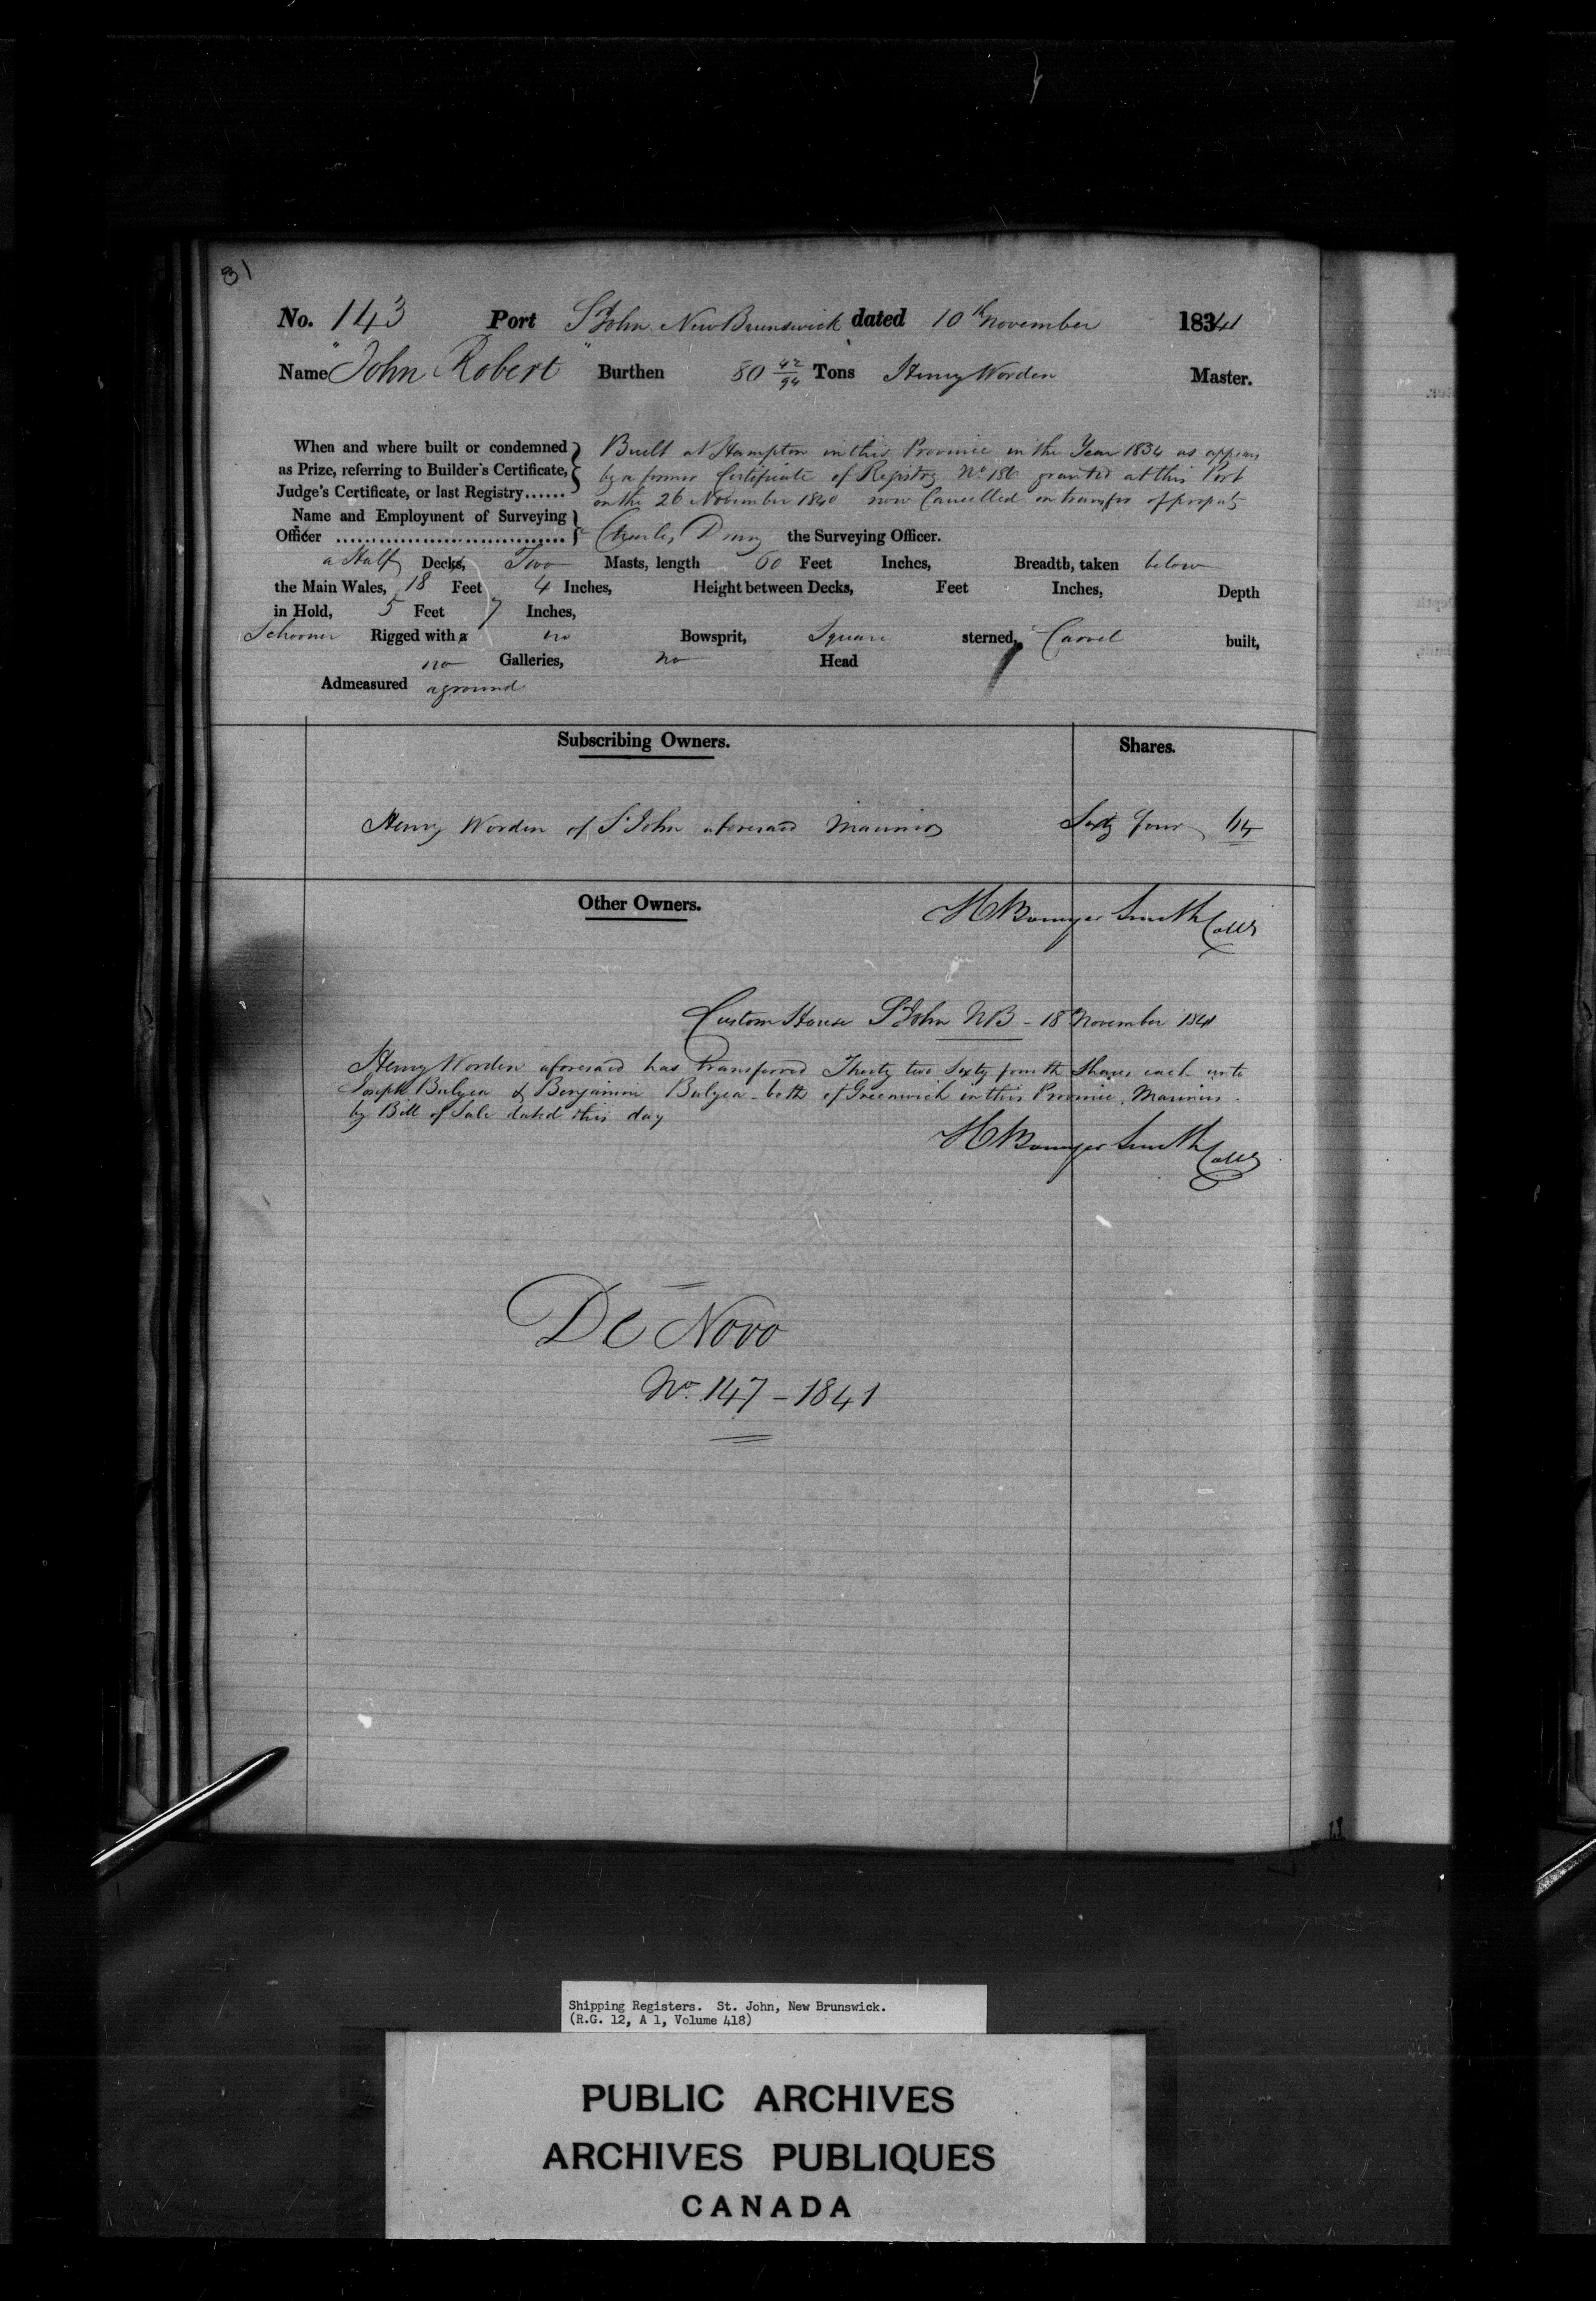 31
No. 143 Port St John New Brunswick dated 10th November 1841
Name "John Robert" Burthen 80 42/94 Tons Henry Worden Master.
When and where built or condemned as Prize, referring to Builder's Certificate, Judge's Certificate, or last Registry......
Built at Hampton in this Province in the Year 1834 as appears
by a former Certificate of Registry No 186 granted at this Port
on the 26 November 1840 now Cancelled on transfer of property
Name and Employment of Surveying Officer
Charles Drury the Surveying Officer.
a Half Deck, Two Masts, length 60 Feet Inches, Breadth, taken below
the Main Wales, 18 Feet 4 Inches, Height between Decks, Feet Inches, Depth
in Hold, 5 Feet 7 Inches,
Schooner Rigged with no Bowsprit, Square sterned, Carvel built,
no Galleries, no Head
Admeasured aground
Subscribing Owners. Shares.
Henry Worden of St John aforesaid Mariner Sixty four 64
Other Owners.
H Bowyer Smith Collr
Custom House St John NB - 18th November 1841
Henry Worden aforesaid has transferred Thirty two Sixty fourth Shares each unto
Joseph Bulyea & Benjamin Bulyea both of Greenwich in this Province Mariners.
by Bill of Sale dated this day
H Bowyer Smith Collr
De Novo
No. 147 - 1841
Shipping Registers. St. John, New Brunswick.
(R.G. 12, A 1, Volume 418)
PUBLIC ARCHIVES
ARCHIVES PUBLIQUES
CANADA